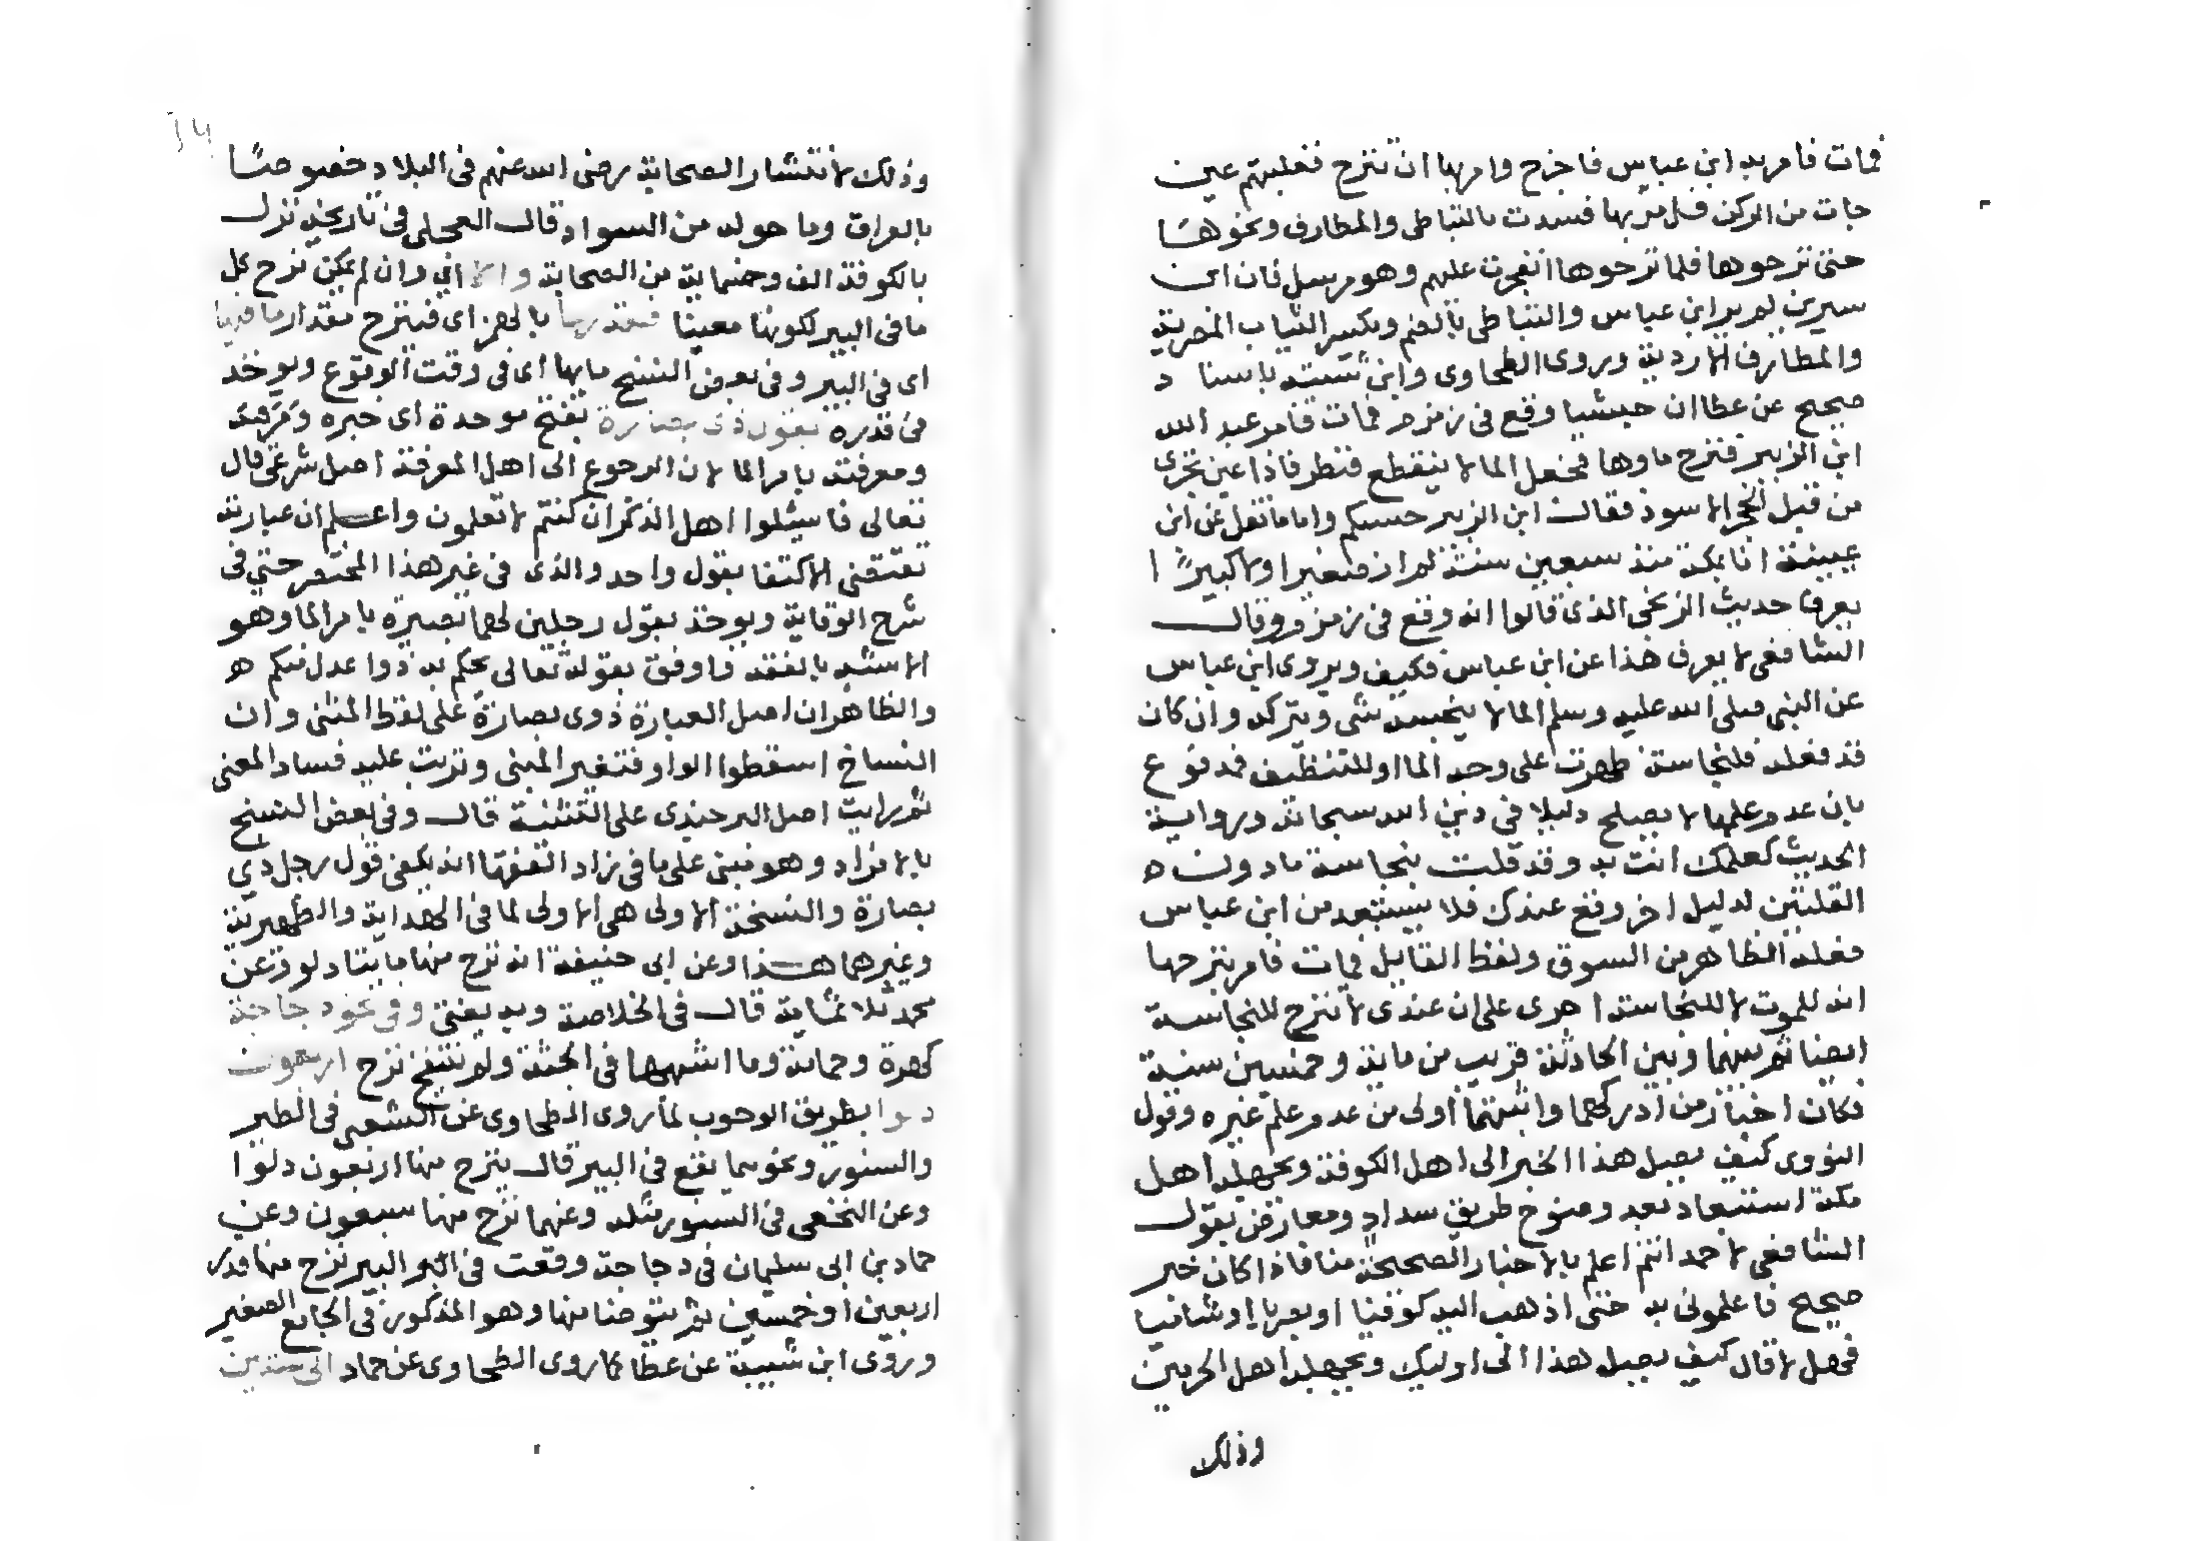 فمات فامر به ابن عباس فاخرج وامر بها ان تنزح فغلبتهم عين
جات من الركن فامر بها فسدت بالقباطى والمطارف ونحوها
حتى نزحوها فلما نزحوها انفجرت عليهم وهو مرسل فان ابن
سيرين لم ير ابن عباس والقباطى بالضم وبكسر الثياب المصرية
والمطارف الاردية وروى الطحاوى وابن شيبة باسناد
صحيح عن عطا ان حبشيا وقع فى زمزم فمات فامر عبد الله
ابن الزبير فنزح ماوها فجعل الما لا ينقطع فنظر فاذا عين تجرى
من قبل الحجر الاسود فقال ابن الزبير حسبكم واما ما نقل عن ابن
عيينة انا بمكة منذ سبعين سنة لم ار صغيرا ولا كبيرًا
يعرف حديث الزنجى الذى قالوا انه وقع فى زمزم وقال
الشافعى لا يعرف هذا عن ابن عباس فكيف ويروى ابن عباس
عن النبى صلى الله عليه وسلم الما لا ينجسه شى ويتركه وان كان
قد فعله فلنجاسة ظهرت على وجه الما او للتنظيف فمدفوع
بان عدم علمها لا يصلح دليلا فى دين الله سبحانه ورواية
الحديث كعلمك انت به وقد قلت بنجاسة ما دون
القلتين لدليل اخر وقع عندك فلا يستبعد من ابن عباس
فعله الظاهر من السوق ولفظ القايل فمات فامر بنزحها
انه للموت لا للنجاسة اخرى على ان عندى لا تنزح للنجاسة
ايضا ثم بينهما وبين الحادثة قريب من ماية وخمسين سنة
فكان اخبار من ادركها واثبتها اولى من عدم علم غيره وقول
النووى كيف يصل هذا الخبر الى اهل الكوفة ويجهله اهل
مكة استبعاد بعد وضوح طريق سداد ومعارض بقول
الشافعى لاحمد انتم اعلم بالاخبار الصحيحة منا فاذا كان خبر
صحيح فاعلمونى به حتى اذهب اليه كوفيا او بصريا او شاميا
فهل لا قال كيف يصل هذا الى اوليك ويجهله اهل الحرمين
وذلك
وذلك لانتشار الصحابة رضى الله عنهم فى البلاد خصوصًا
بالعراق وما حوله من السواد قال العجلى فى تاريخه نزل
بالكوفة الف وخمسماية من الصحابة والا اى وان لم يمكن نزح كل
ما فى البير لكونها معينا فقدر ما بالجزاى فينزح مقدار ما فيها
اى فى البير وفى بعض النسخ ما بها اى فى وقت الوقوع ويوخذ
فى قدره بقول ذى بصارة بفتح موحدة اى خبره ومرقة
ومعرفة بامر الما لان الرجوع الى اهل المعرفة اصل شرعى قال
تعالى فاسئلوا اهل الذكر ان كنتم لا تعلمون واعلم ان عبارته
تقتضى الاكتفا بقول واحد والذى فى غير هذا المختصر حتى فى
شرح الوقاية ويوخذ بقول رجلين لهما بصيرة بامر الما وهو
الاشبه بالفقه واوفق بقوله تعالى يحكم به ذوا عدل منكم
والظاهر ان اصل العبارة ذوى بصارة على لفظ المثنى وان
النساخ اسقطوا الواو فتغير المبنى وترتب عليه فساد المعنى
ثم رايت اصل البرجندى على التثنية قال وفى بعض النسخ
بالافراد وهو مبنى على ما فى زاد الفقها انه يكفى قول رجل ذى
بصارة والنسخة الاولى هى الاولى لما فى الهداية والظهيرية
وغيرهما هذا وعن ابى حنيفة انه نزح منها مايتا دلو وعن
محمد ثلاثماية قال فى الخلاصة وبه يفتى وفى نحو دجاجة
كهرة وحمامة وما اشبهها فى الجثة ولم تنتفخ نزح اربعون
دلوا بطريق الوجوب لما روى الطحاوى عن الشعبى فى الطير
والسنور ونحوهما يقع فى البير قال ينزح منها اربعون دلوًا
وعن النخعى فى السنور مثله وعنهما نزح منها سبعون وعن
حماد بن ابى سليمان فى دجاجة وقعت فى البير نزح منها قدر
اربعين او خمسين ثم يتوضا منها وهو المذكور فى الجامع الصغير
وروى ابن شيبة عن عطا كما روى الطحاوى عن حماد